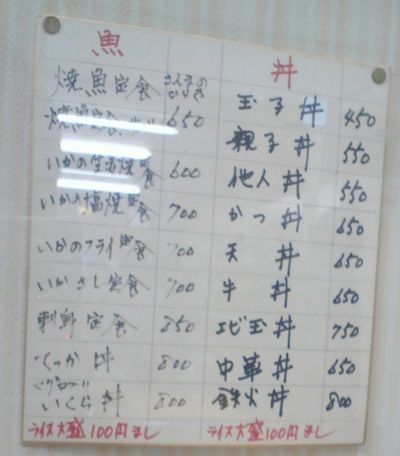 魚
焼魚定食 さんまのかばやき
焼魚定食 650
いかの生姜焼定食 600
いかの塩焼定食 700
いかのフライ定食 700
いかさし定食 700
刺身定食 850
てっか丼 800
いくら丼 800
ライス大盛100円まし
丼
玉子丼 450
親子丼 550
他人丼 550
かつ丼 650
天丼 650
牛丼 650
エビ玉丼 750
中華丼 650
鉄火丼 800
ライス大盛100円まし